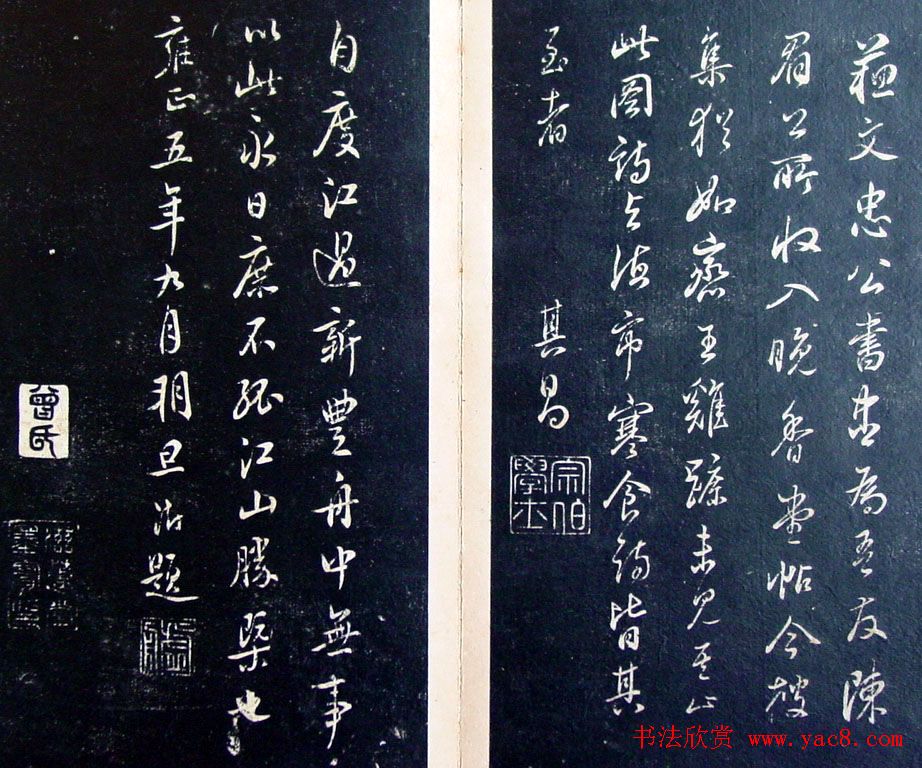 蘇文忠公書為吾友陳
眉公所收入晚香堂帖今搜
集猶如齊王雞蹠未見其止
此圖詩与寒食詩皆其
至者 其昌
宗伯學士
自度江過新豐舟中無事
以此永日庶不孤江山勝槩也
雍正五年九月朔旦題
曾氏
书法欣赏 www.yac8.com